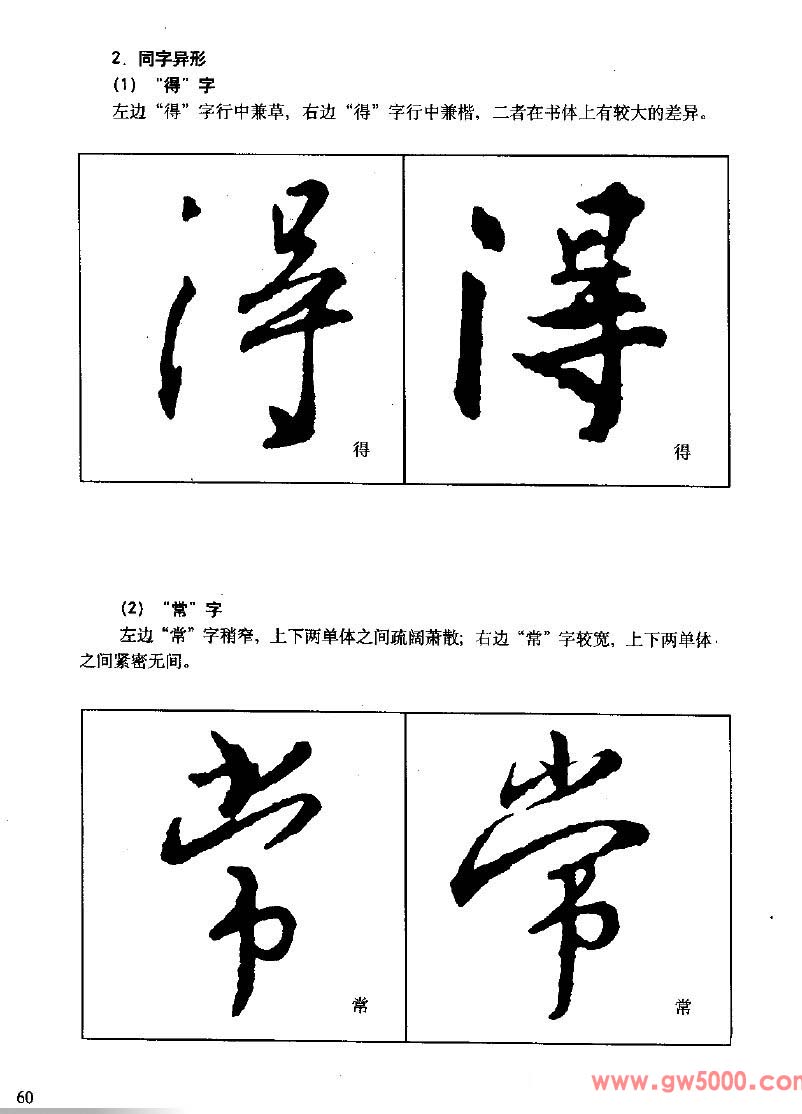 2. 同字异形
(1) “得”字
左边“得”字行中兼草，右边“得”字行中兼楷，二者在书体上有较大的差异。
得 得
得 得
(2) “常”字
左边“常”字稍窄，上下两单体之间疏阔萧散；右边“常”字较宽，上下两单体
之间紧密无间。
常 常
常 常
60
www.gw5000.com